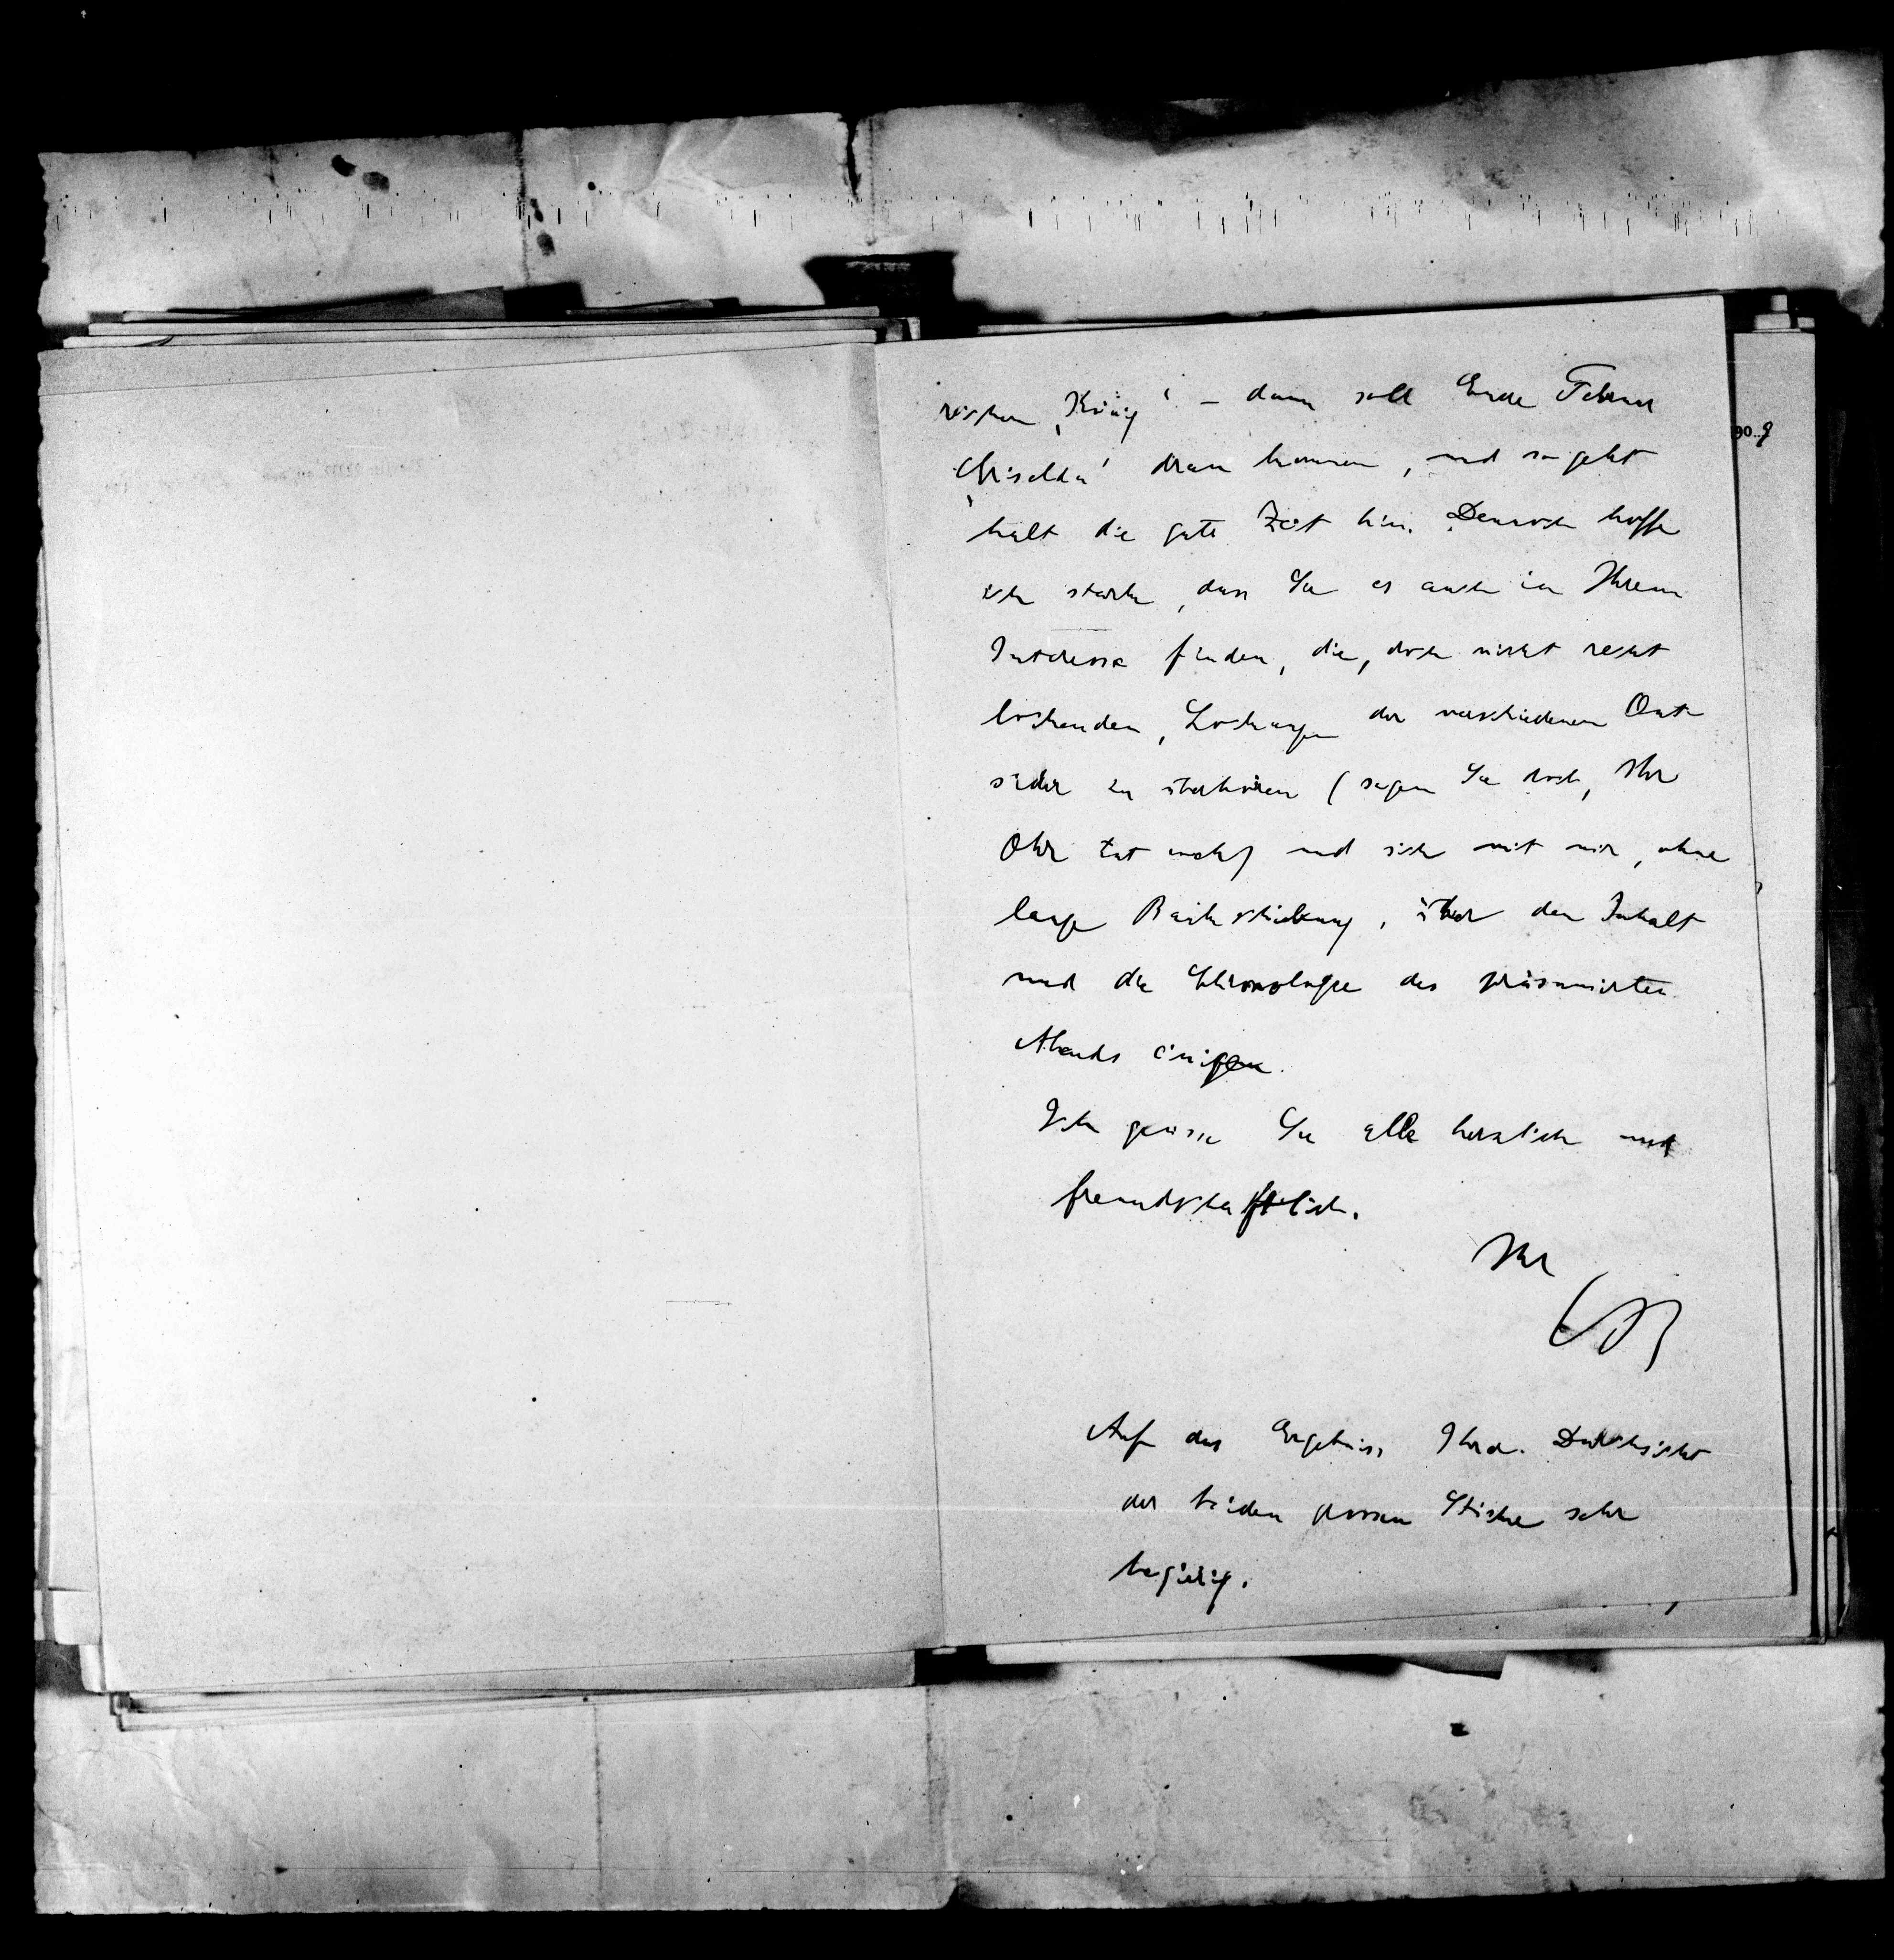 rischen ‚König‘ – dann soll Ende Februar
‚Griselda‘ dran kommen, und so geht
halt die gute Zeit hin. Dennoch hoffe
ich stark, dass Sie es auch in Ihrem
Interesse finden, die, doch nicht recht
lockenden, Lockungen der verschiedenen Out-
sider zu überhören (sagen Sie doch, Ihr
Ohr tut weh) und sich mit mir, ohne
lange Rückschiebung, über den Inhalt
und die Chronologie des präsumirten
Abends einigen.
Ich grüsse Sie alle herzlich und
freundschaftlich.
Ihr
Auf das Ergebniss Ihrer Durchsicht
der beiden grossen Stücke sehr
begierig.